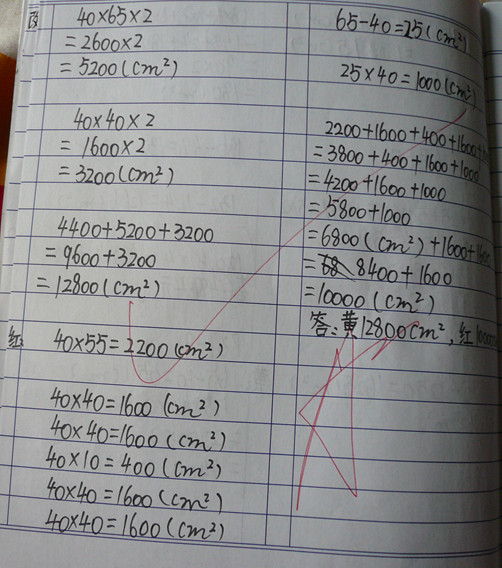 40×65×2
=2600×2
=5200(cm²)
40×40×2
=1600×2
=3200(cm²)
4400+5200+3200
=9600+3200
=12800(cm²)
红:
40×55=2200(cm²)
40×40=1600(cm²)
40×40=1600(cm²)
40×10=400(cm²)
40×40=1600(cm²)
40×40=1600(cm²)
65-40=25(cm²)
25×40=1000(cm²)
2200+1600+400+1600+
=3800+400+1600+1000
=4200+1600+1000
=5800+1000
=6800(cm²)+1600+1600
=8400+1600
=10000(cm²)
答:黄12800cm²,红10000